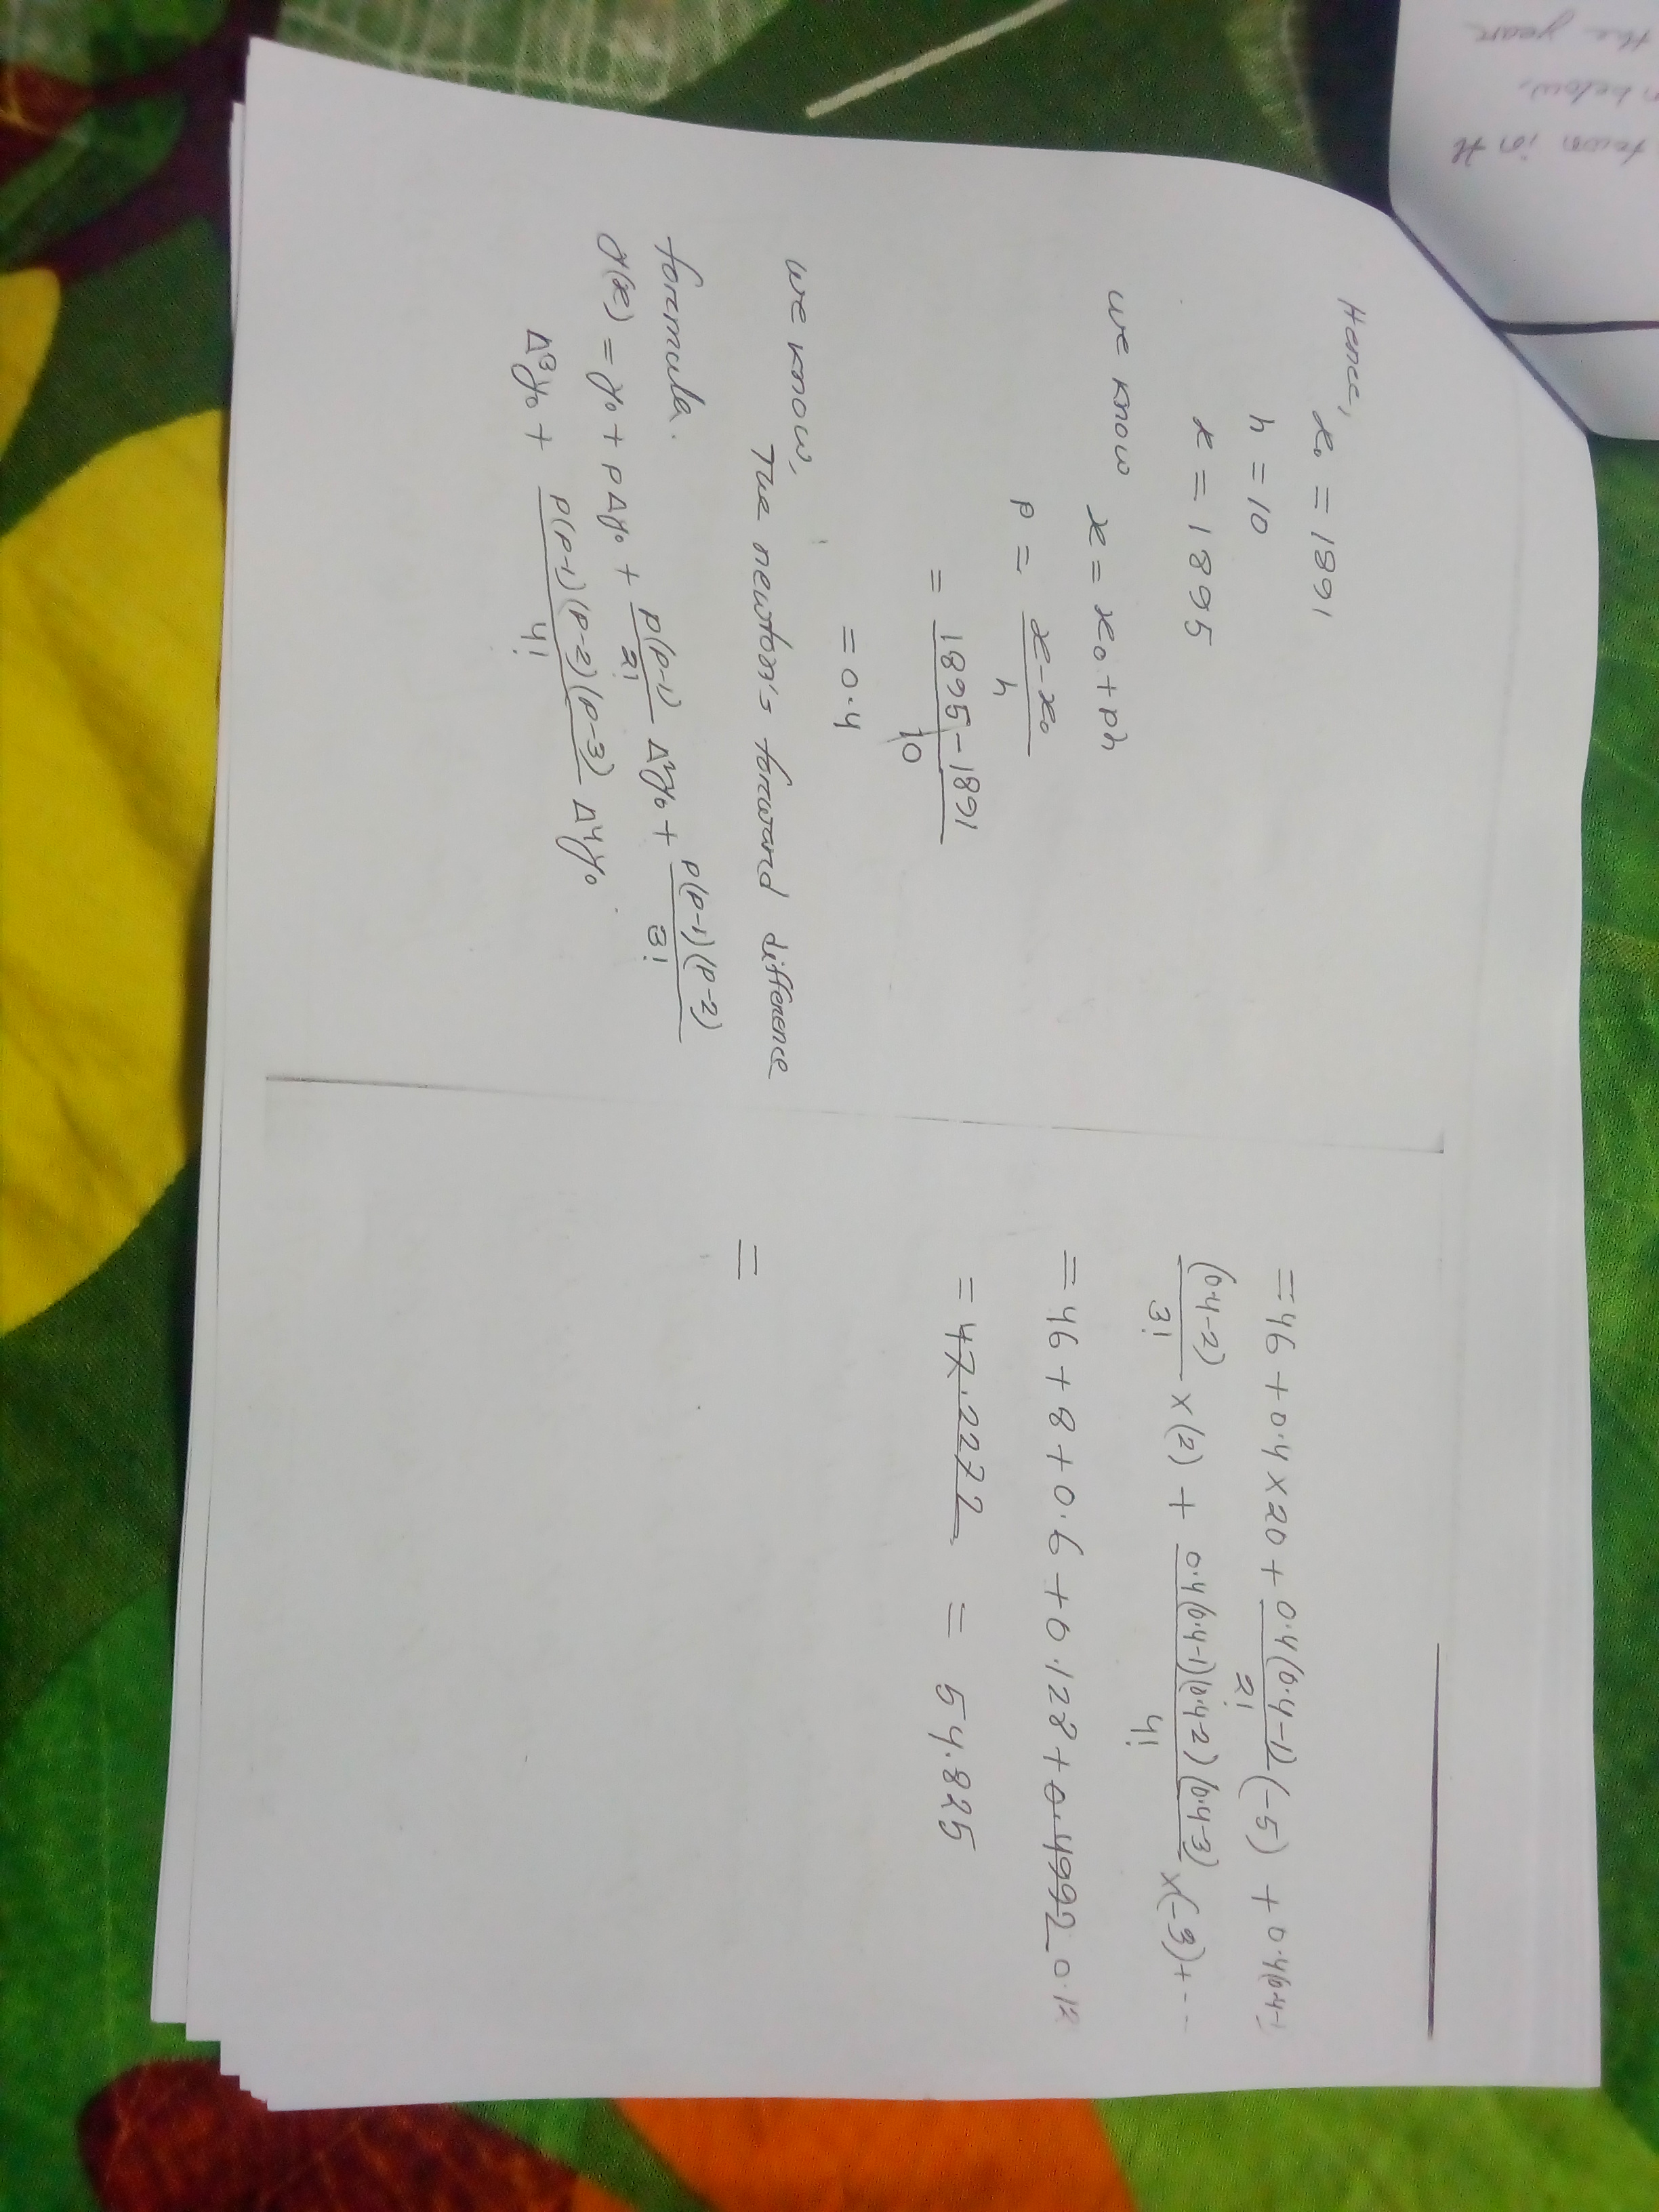 Hence,
x₀ = 1891
h = 10
x = 1895
we know x = x₀ + ph
p = (x - x₀)/h
= (1895 - 1891)/10
= 0.4
we know,
The newton's forward difference
formula.
y(x) = y₀ + pΔy₀ + p(p-1)/2! Δ²y₀ + p(p-1)(p-2)/3!
Δ³y₀ + p(p-1)(p-2)(p-3)/4! Δ⁴y₀
= 46 + 0.4 × 20 + 0.4(0.4-1)/2! (-5) + 0.4(0.4-1
(0.4-2)/3! × (2) + 0.4(0.4-1)(0.4-2)(0.4-3)/4! × (-3) + ---
= 46 + 8 + 0.6 + 0.128 + 0.4992 0.12
= 47.2272 = 54.825
=
town in th
below,
the year